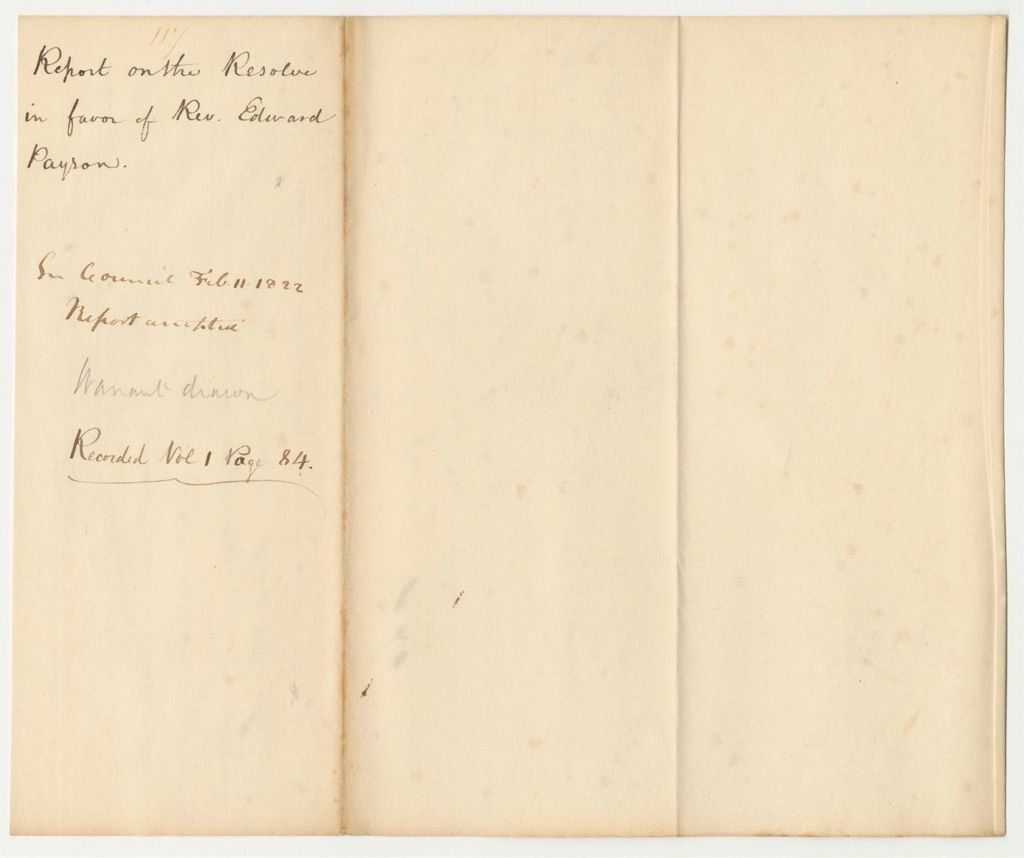 117
Report on the Resolve
in favor of Rev. Edward
Payson.
In Council Feb. 11. 1822
Report accepted
Warrant drawn
Recorded Vol 1 Page 84.